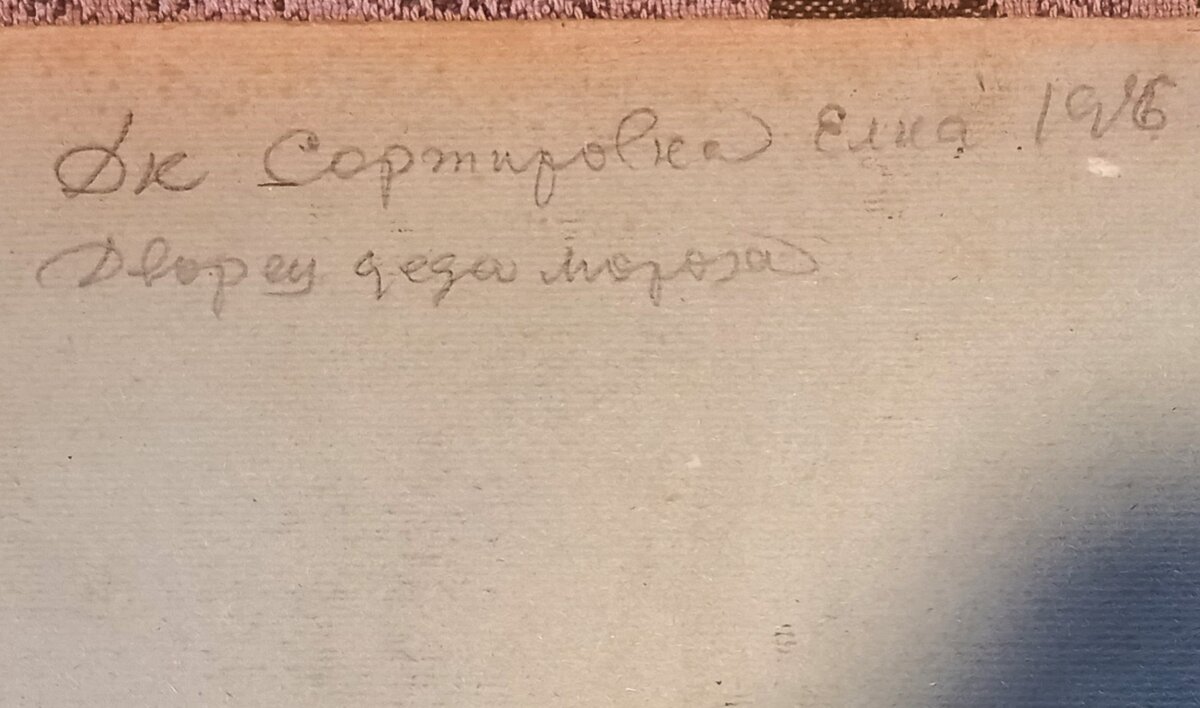 Дк Сортировка Елка
Дворец деда мороза